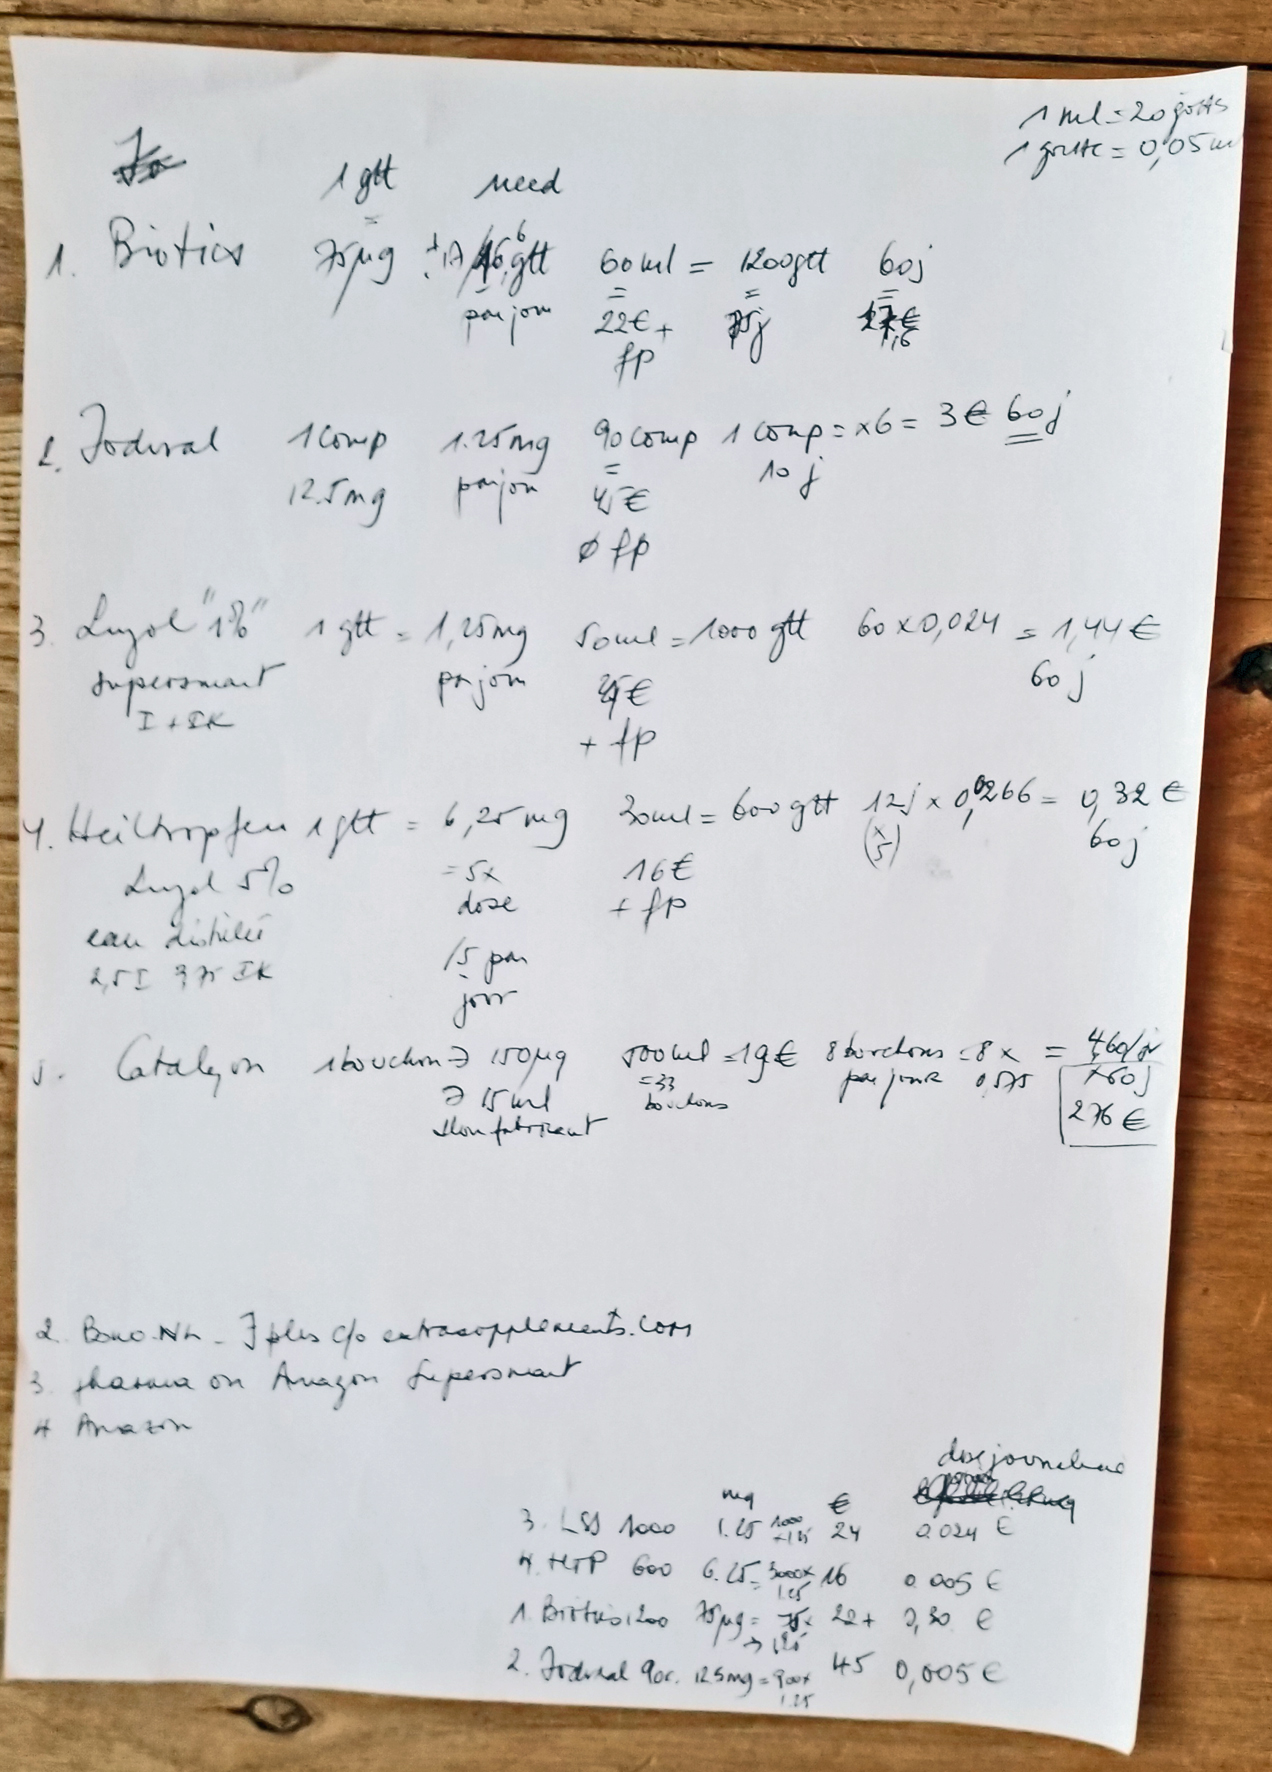 1 ml = 20 gouttes
1 goutte = 0,05 ml
1 gtt need
=
1. Biotics 75µg ± 17 gtt 60 ml = 1200 gtt 60j
par jour = = =
22€ + 75j 17,6 €
fp
2. Iodoral 1 comp 1.25mg 90 comp 1 comp = x6 = 3€ 60j
12.5mg par jour = 10 j
45€
ø fp
3. Lugol "1%" 1 gtt = 1,25mg 50ml = 1000 gtt 60 x 0,024 = 1,44 €
supersmart par jour € 60 j
I + IK + fp
4. Heiltropfen 1 gtt = 6,25 mg 30ml = 600 gtt 12j x 0,0266 = 0,32 €
Lugol 5% = 5x 16€ (x5) 60j
eau distillée dose + fp
2,5 I 3,75 IK /5 par
jour
5. Catalyon 1 bouchon 150µg 500 ml = 19€ 8 bouchons = 8 x = 4,60/jr
15 ml = 33 par jour 0,575 x 60j
selon fabricant bouchons 276 €
2. c/o extrasupplements.com
3. pharma on Amazon Supersmart
4 Amazon
dose journalière
mg €
3. LSS 1000 1.25 1000 x 1.25 24 0.024 €
4. HTP 600 6.25 = 3000 x 1.25 16 0.005 €
1. Biotics 1200 75µg = 75 x 1,25 22+ 0,30 €
2. Iodoral 90c. 12.5mg = 900 x 1.25 45 0,005 €